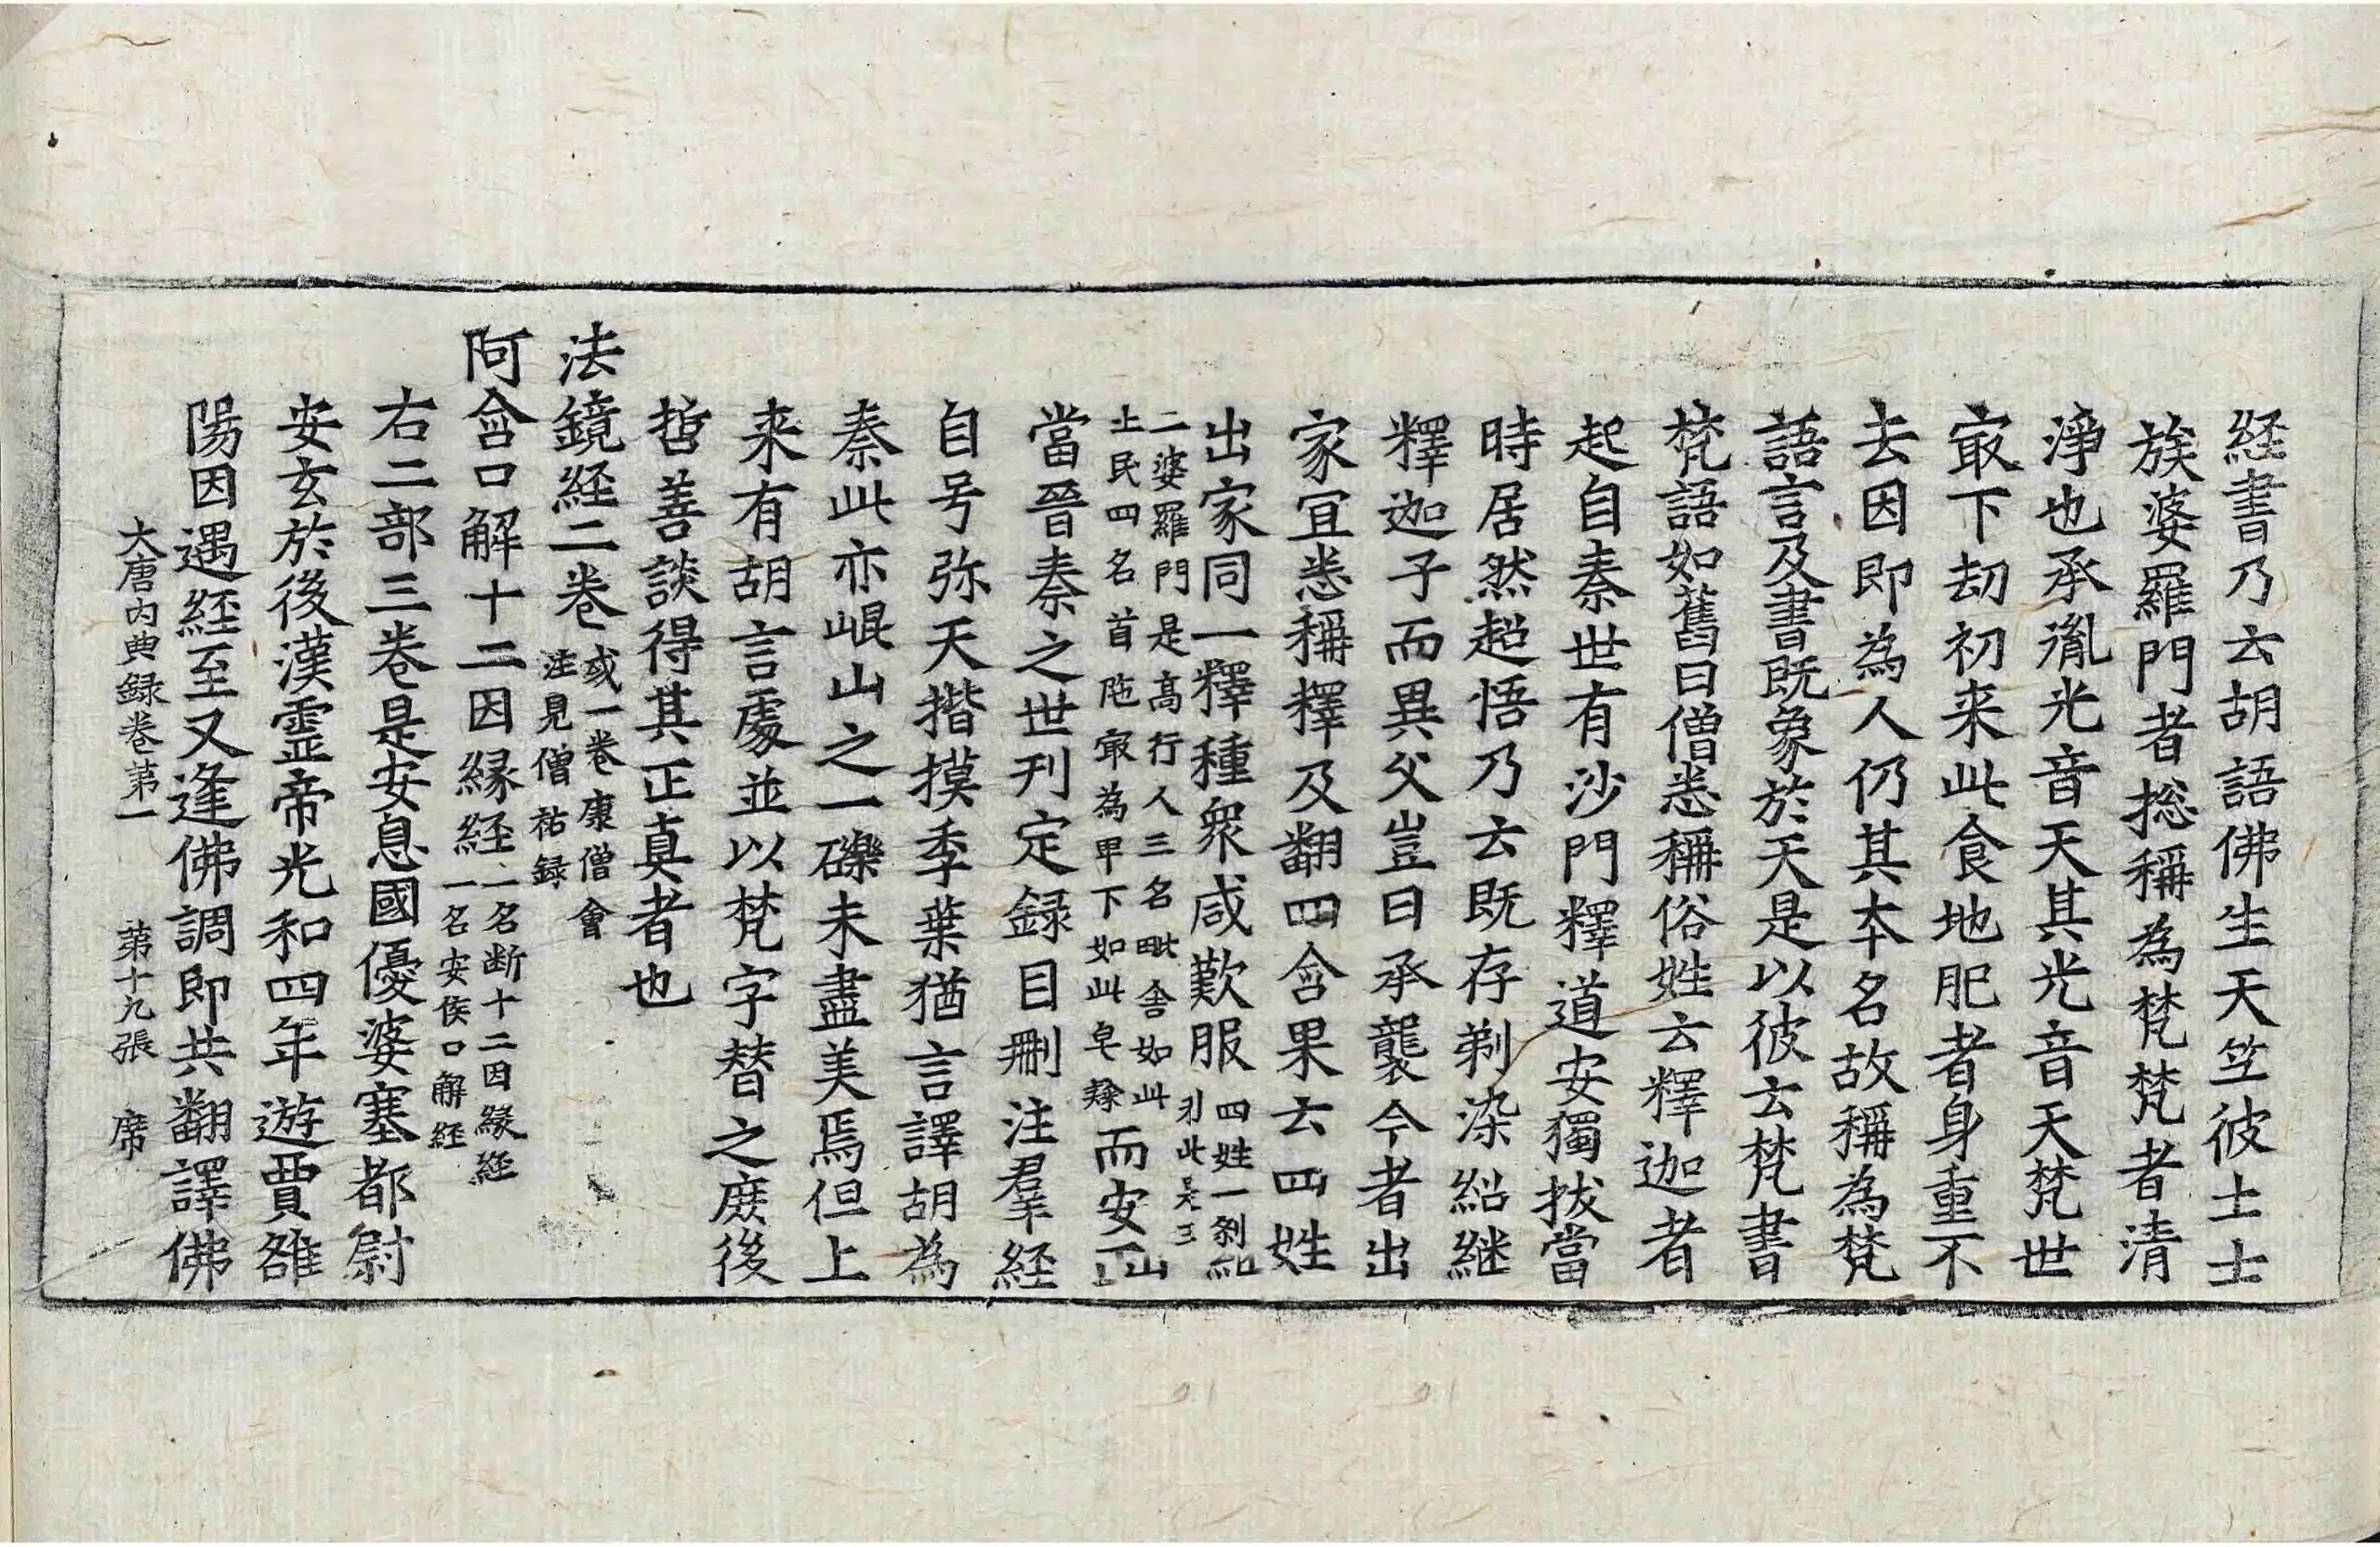 経書乃云胡語佛生天竺彼土士
族婆羅門者捴稱為梵梵者清
淨也承胤光音天其光音天梵世
㝡下劫初来此食地肥者身重不
去因即為人仍其本名故稱為梵
語言及書既象於天是以彼云梵書
梵語如舊曰僧悉稱俗姓云釋迦者
起自秦世有沙門釋道安獨拔當
時居然超悟乃云既存剃染紹継
釋迦子而異父豈曰承襲今者出
家宜悉稱釋及翻四含果云四姓
出家同一釋種衆咸歎服四姓一刹
利此是王
二婆羅門是高行人三名毗舍如此
土民四名首陁㝡為甲下如此皂隸而安
當晉秦之世刊定録目刪注羣経
自号弥天揩摸季葉猶言譯胡為
秦此亦崐山之一礫未盡美焉但上
来有胡言處並以梵字替之庶後
哲善談得其正真者也
法鏡経二卷或一卷康僧會
注見僧祐録
阿含口解十二因縁経一名断十二因縁経
一名安侯口解経
右二部三卷是安息國優婆塞都尉
安玄於後漢霊帝光和四年遊賈雒
陽因遇経至又逢佛調即共翻譯佛
大唐内典録卷第一 第十九張 席